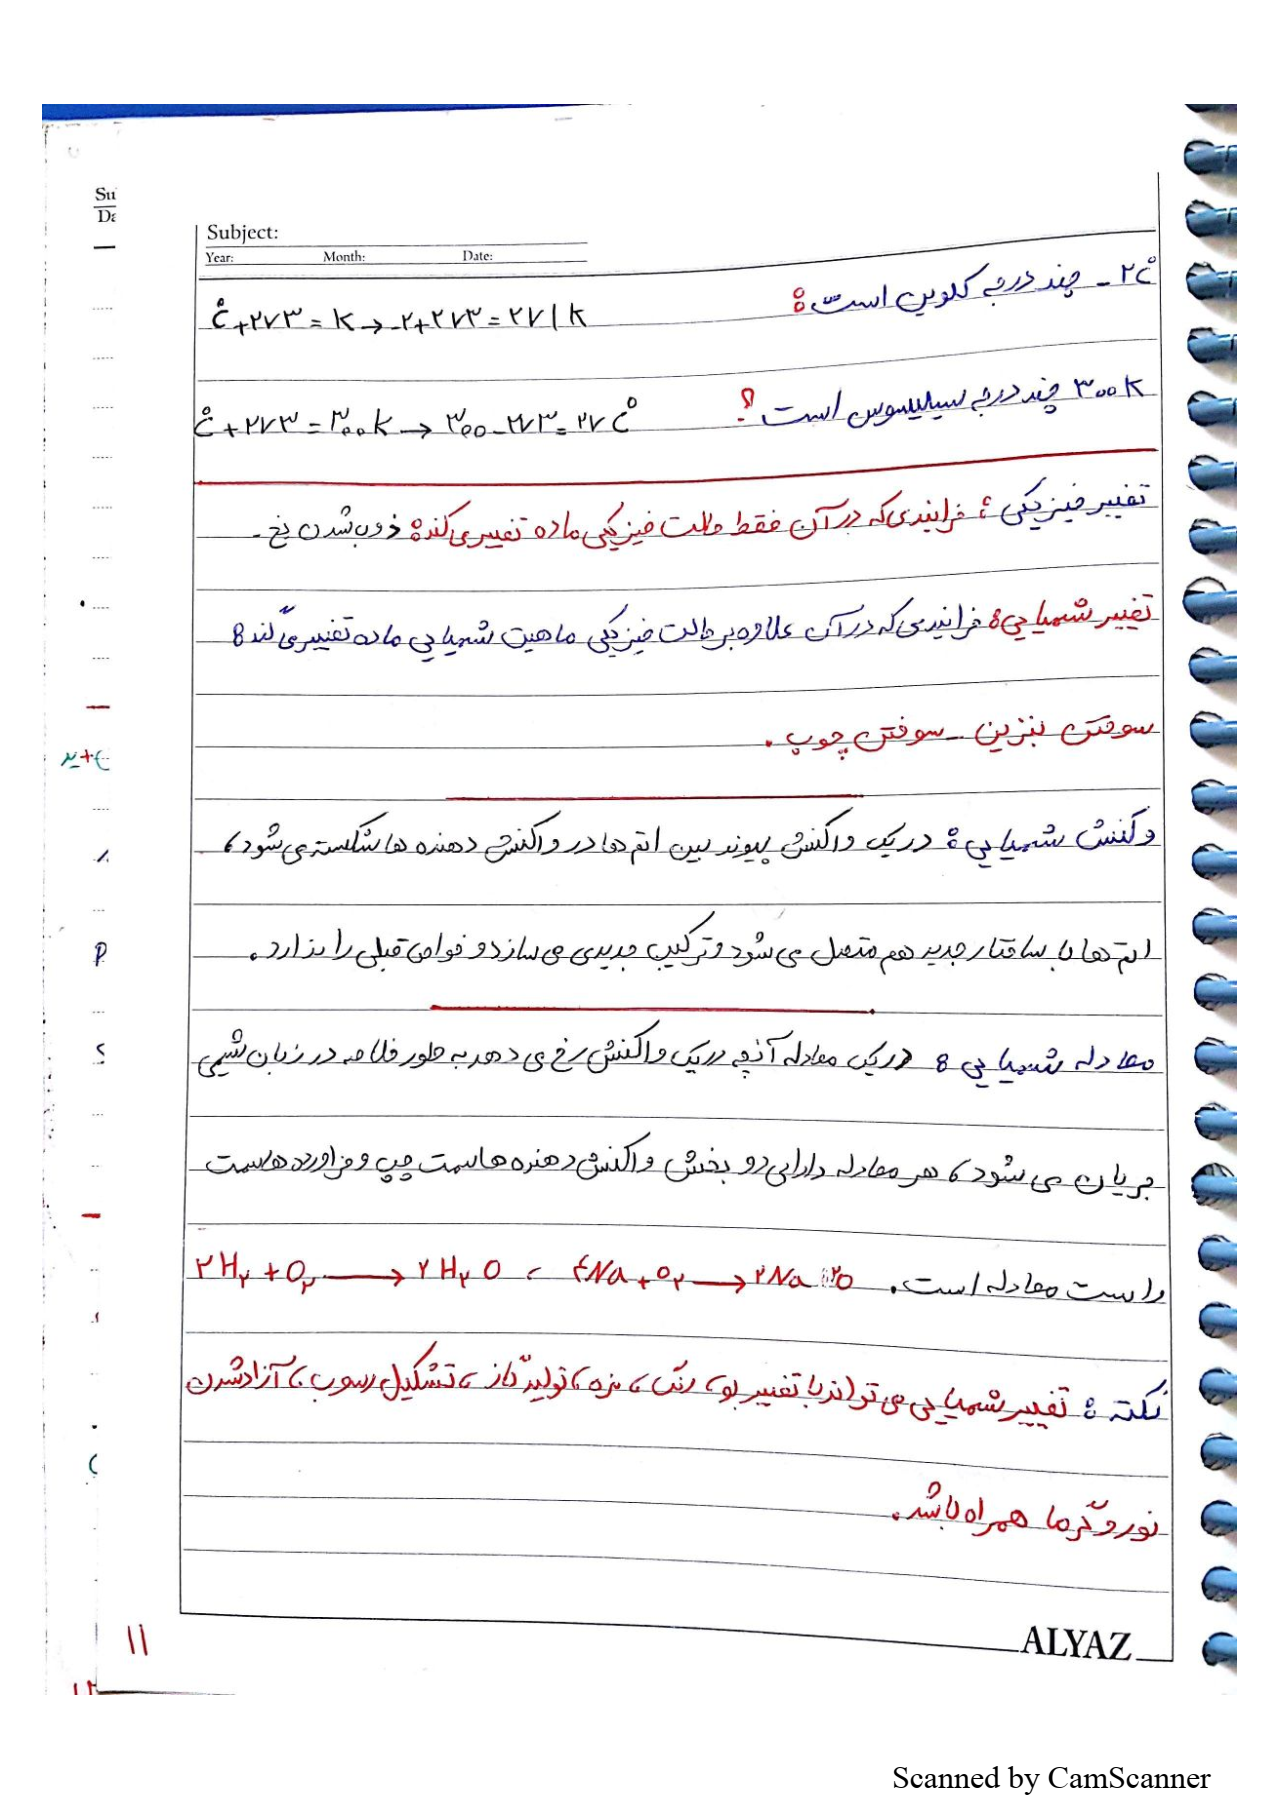 Subject:
Year: Month: Date:
-۲°C چند درجه کلوین است:
°C+۲۷۳=K → -۲+۲۷۳=۲۷۱K
۳۰۰K چند درجه سیلیسوس است؟
°C+۲۷۳=۳۰۰K → ۳۰۰-۲۷۳=۲۷°C
تغییر فیزیکی: فرایندی که در آن فقط حالت فیزیکی ماده تغییر می کند: ذوب شدن یخ.
تغییر شیمیایی: فرایندی که در آن علاوه بر حالت فیزیکی ماهیت شیمیایی ماده تغییر می کند:
سوختن بنزین - سوختن چوب.
وکنش شیمیایی: در یک واکنش پیوند بین اتم ها در واکنش دهنده ها شکسته می شود،
اتم ها با ساختار جدید هم متصل می شود و ترکیب جدیدی می سازد و خواص قبلی را ندارد.
معادله شیمیایی: در یک معادله آنچه در یک واکنش رخ می دهد به طور خلاصه در زبان شیمی
جریان می شود، هر معادله دارایی دو بخش واکنش دهنده ها سمت چپ و فراورده ها سمت
راست معادله است. ۲H۲+O۲ → ۲H۲O ، ۴Na+O۲ → ۲Na۲O
نکته: تغییر شیمیایی می تواند با تغییر بو، رنگ، مزه، تولید گاز، تشکیل رسوب، آزاد شدن
نور و گرما همراه باشد.
ALYAZ
۱۱
Scanned by CamScanner